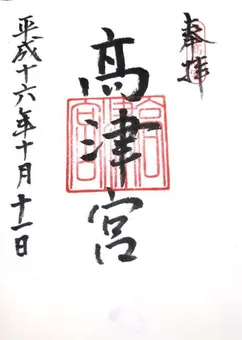 奉拝
高津宮
平成十六年十月十一日